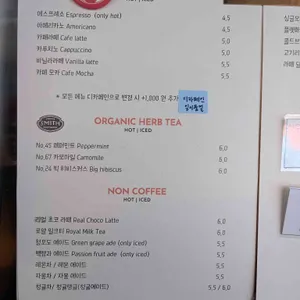 에스프레소 Espresso (only hot) 4,5
아메리카노 Americano 4,5
카페라떼 Cafe latte 5,0
카푸치노 Cappuccino 5,0
바닐라라떼 Vanilla latte 5,5
카페 모카 Cafe Mocha 5,5
* 모든 메뉴 디카페인으로 변경 시 +1,000 원 추가
디카페인
SMITH
ORGANIC HERB TEA
HOT | ICED
No.45 페퍼민트 Peppermint 6,0
No.67 카모마일 Camomile 6,0
No.24 빅 히비스커스 Big hibiscus 6,0
NON COFFEE
HOT | ICED
리얼 초코 라떼 Real Choco Latte 6,0
로얄 밀크티 Royal Milk Tea 6,0
청포도 에이드 Green grape ade (only iced) 5,5
백향과 에이드 Passion fruit ade (only iced) 5,5
레몬차 / 레몬 에이드 5,5
자몽차 / 자몽 에이드 5,5
청귤차/ 청귤탠귤(청귤에이드) 5,5 / 6,0
싱글오
콜드브